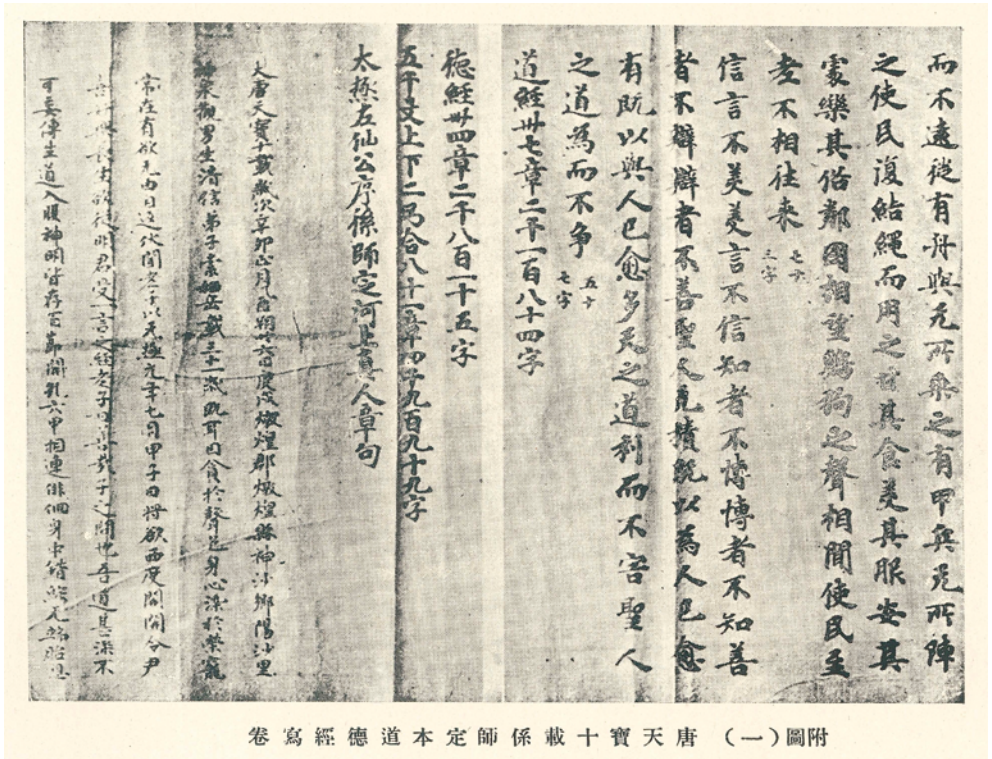 而不遠徙有舟轝无所乗之有甲兵无所陳
之使民復結繩而用之甘其食美其服安其
處樂其俗鄰國相望鷄狗之聲相聞使民至
老不相往来 七十三字
信言不美美言不信知者不博博者不知善
者不辯辯者不善聖人无積既以為人已愈
有既以與人已愈多天之道利而不害聖人
之道為而不争 五十七字
道經卅七章二千一百八十四字
德經卌四章二千八百一十五字
五千文上下二卷合八十一章四千九百九十九字
太極左仙公序係師定河上真人章句
大唐天寶十載歲次辛卯正月乙酉朔廿六日庚戌燉煌郡燉煌縣神沙鄉陽沙里
神泉觀男生清信弟子索栖岳載三十一歲耳目貪於聲色身心染於榮寵
常在有欲无由自達伏聞老子以无極元年七月甲子日將欲西度關關令尹
喜好樂長生欲從明君受一言之經老子曰善哉子之問也吾道甚深不
可妄傳生道入腹神明皆存百節關孔六甲相連徘徊身中錯綜无端胎息
附圖（一）唐天寶十載係師定本道德經寫卷